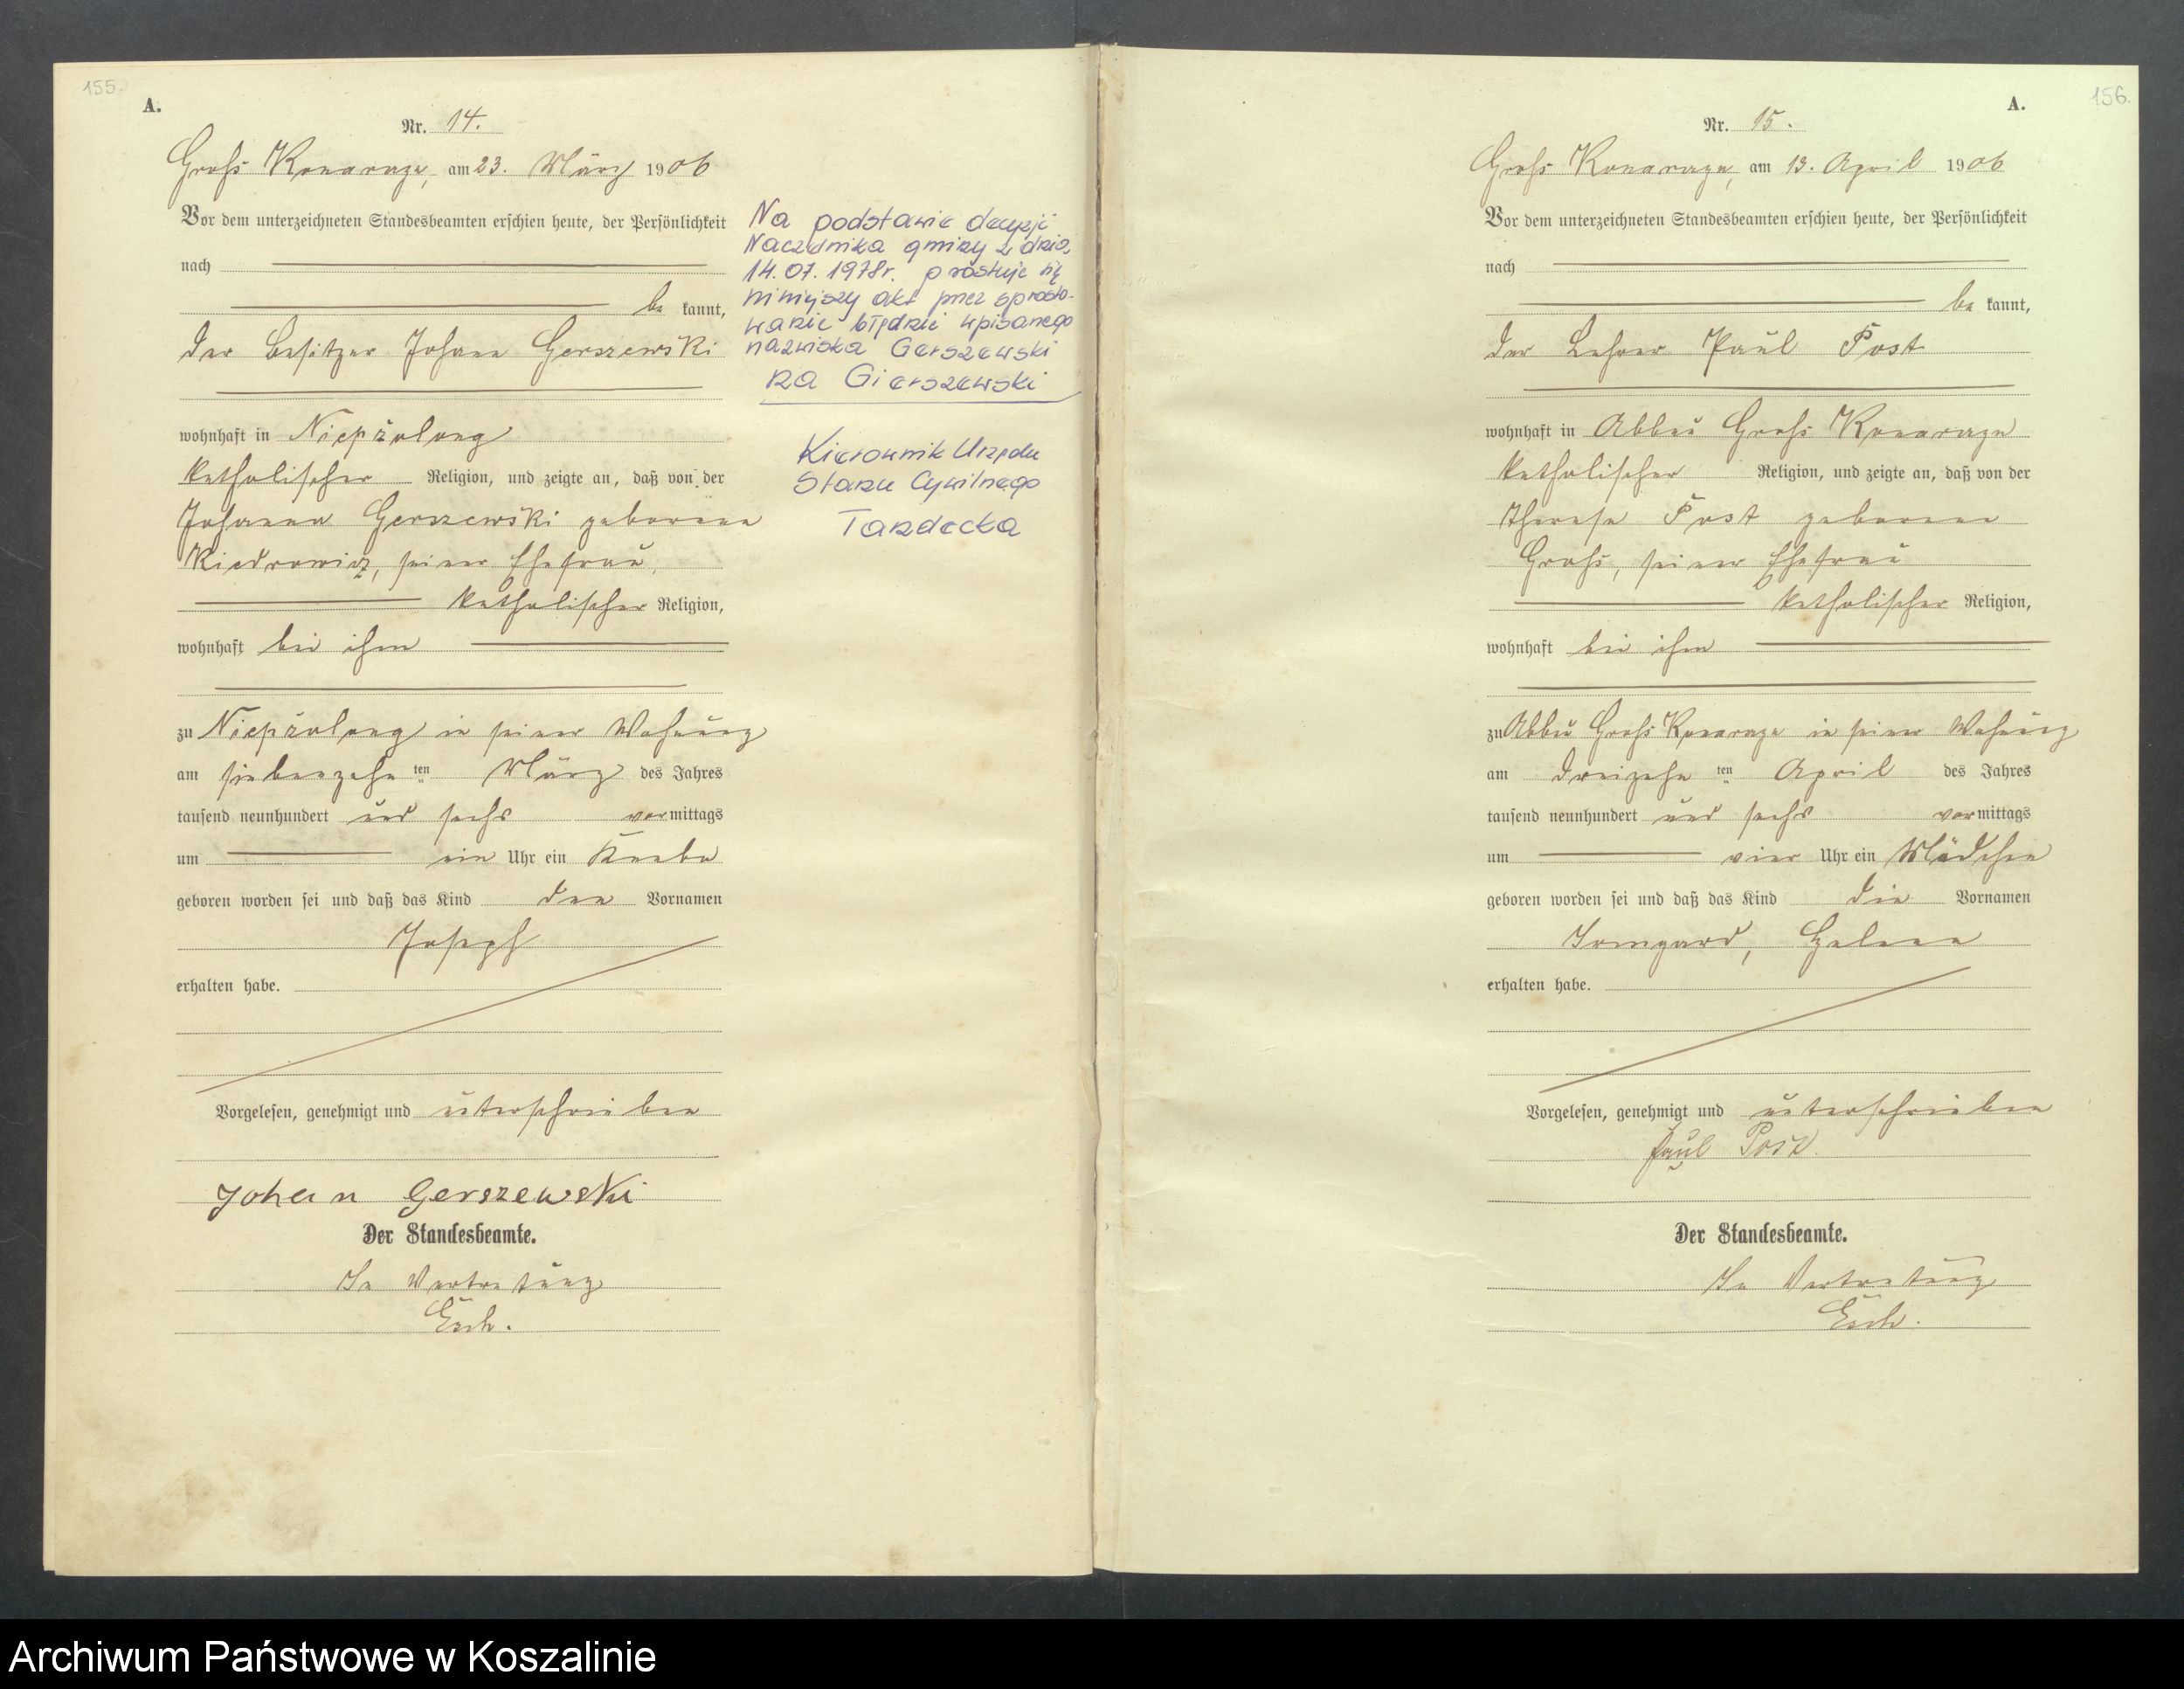 155.
A.
Nr. 14.
Groß Konarczyn, am 23. März 1906
Vor dem unterzeichneten Standesbeamten erschien heute, der Persönlichkeit
nach
be kannt,
der Besitzer Johann Gerszewski
wohnhaft in
katholischer Religion, und zeigte an, daß von der
Johanna Gerszewski geborene
Kiedrowicz, seiner Ehefrau,
katholischer Religion,
wohnhaft bei ihm
zu in seiner Wohnung
am siebenzehn ten März des Jahres
tausend neunhundert und sechs vormittags
um ein Uhr ein Knabe
geboren worden sei und daß das Kind den Vornamen
Joseph
erhalten habe.
Vorgelesen, genehmigt und unterschrieben
Johan Gerszewski
Der Standesbeamte.
In Vertretung
Na podstawie decyzji
Naczelnika gminy z dnia
14.07.1978r. prostuje się
niniejszy akt przez sprosto-
wanie błędnie wpisanego
nazwiska Gerszewski
na Gierszewski
Kierownik Urzędu
Stanu Cywilnego
156.
A.
Nr. 15.
Groß Konarczyn, am 13. April 1906
Vor dem unterzeichneten Standesbeamten erschien heute, der Persönlichkeit
nach
be kannt,
der Lehrer Paul Post
wohnhaft in Abbau Groß Konarczyn
katholischer Religion, und zeigte an, daß von der
Therese Post geborene
Groß, seiner Ehefrau
katholischer Religion,
wohnhaft bei ihm
zu Abbau Groß Konarczyn in seiner Wohnung
am dreizehn ten April des Jahres
tausend neunhundert und sechs vormittags
um vier Uhr ein Mädchen
geboren worden sei und daß das Kind die Vornamen
Irmgard, Helene
erhalten habe.
Vorgelesen, genehmigt und unterschrieben
Paul Post.
Der Standesbeamte.
In Vertretung
Archiwum Państwowe w Koszalinie